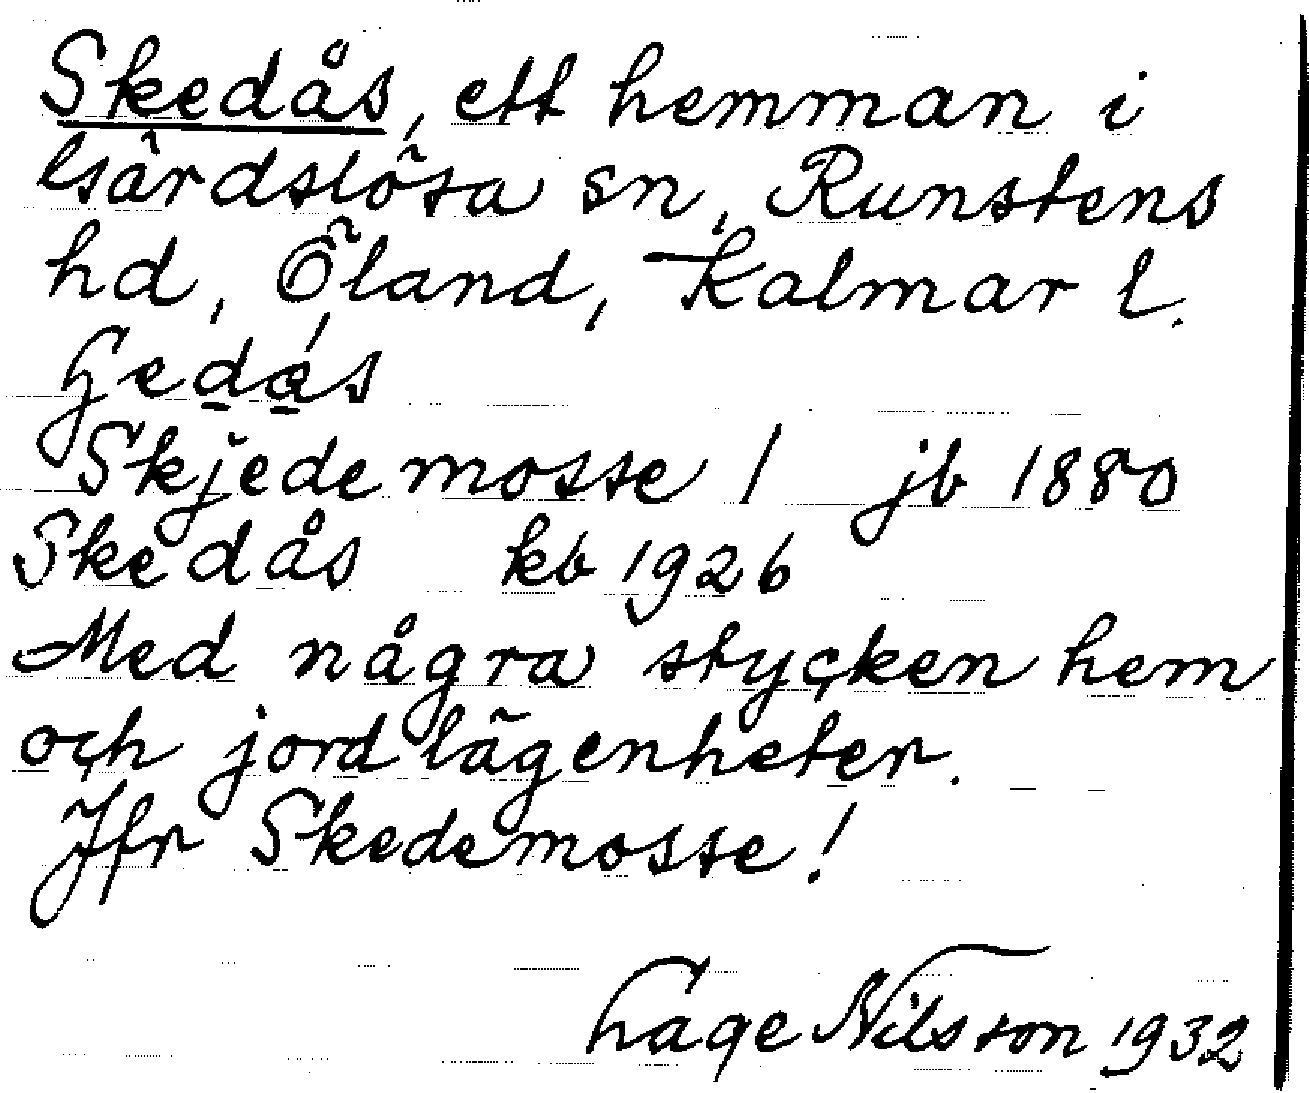 Skedås, ett hemman i
Gärdslösa sn, Runstens
hd, Öland, Kalmar l.
Skjedemosse 1 jb 1880
Skedås kb 1926
Med några stycken hem
och jordlägenheter.
Jfr Skedemosse!
Hage Nilsson 1932